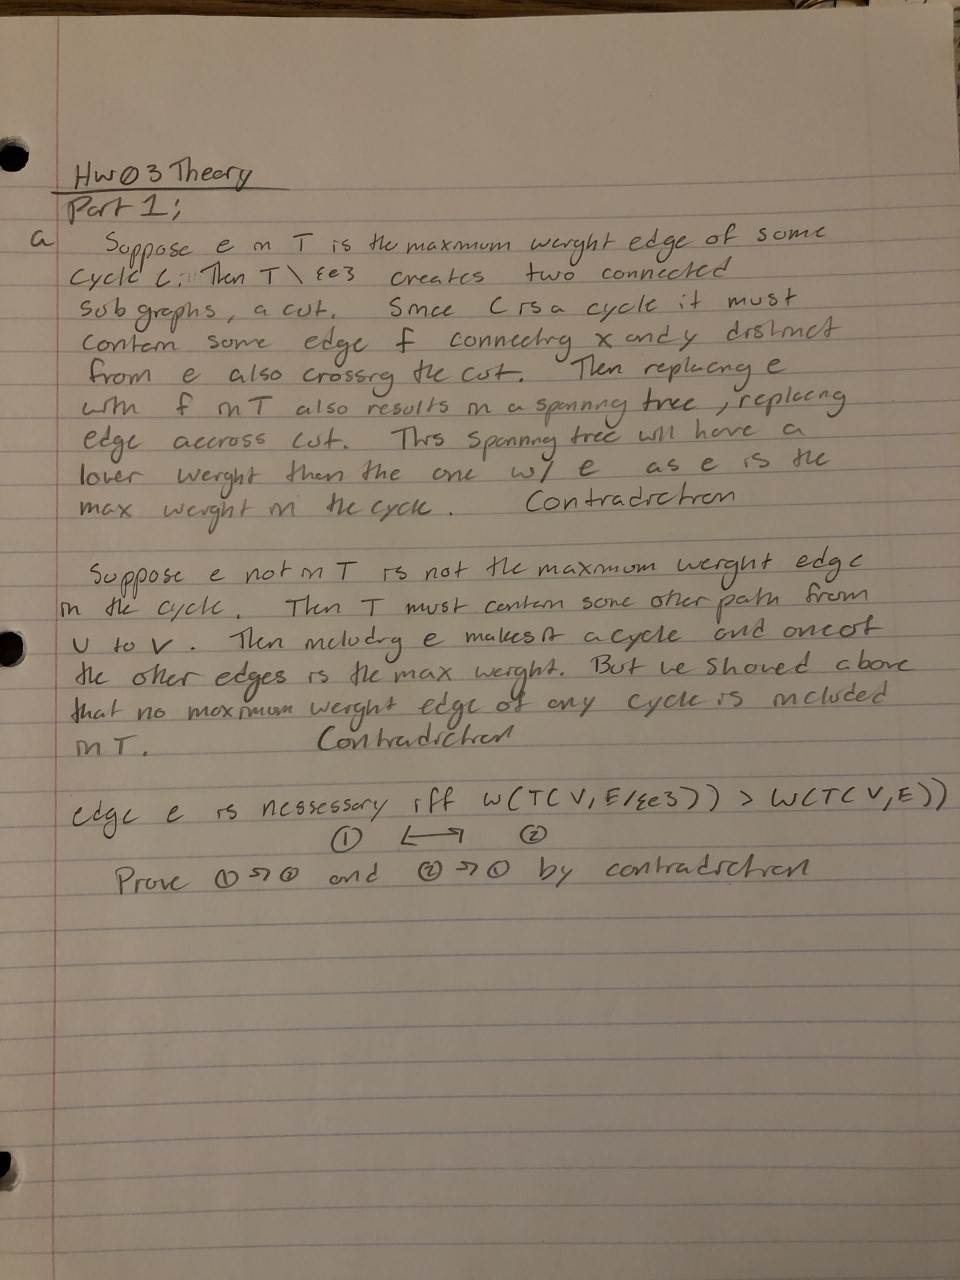 HW03 Theory
Part 1;
a Suppose e in T is the maximum weight edge of some
cycle C. Then T \ {e} creates two connected
sub graphs, a cut. Since C is a cycle it must
contain some edge f connecting x and y distinct
from e also crossing the cut. Then replacing e
with f in T also results in a spanning tree, replacing
edge accross cut. This spanning tree will have a
lower weight then the one w/ e as e is the
max weight in the cycle. Contradiction
Suppose e not in T is not the maximum weight edge
in the cycle. Then T must contain some other path from
U to V. Then including e makes it a cycle and one of
the other edges is the max weight. But we showed above
that no maximum weight edge of any cycle is included
in T. Contradiction
edge e is nessessary iff W(T(V, E/{e})) > W(T(V, E))
① ↔ ②
Prove ① → ② and ② → ① by contradiction